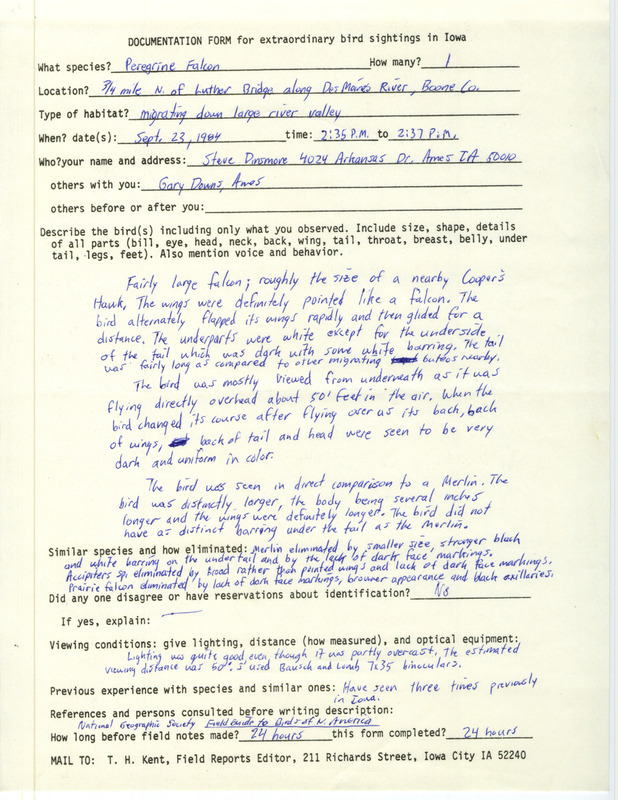 DOCUMENTATION FORM for extraordinary bird sightings in Iowa
What species? Peregrine Falcon How many? 1
Location? 3/4 mile N. of Luther Bridge along Des Moines River, Boone Co.
Type of habitat? migrating down large river valley
When? date(s): Sept. 23, 1984 time: 2:35 P.M. to 2:37 P.M.
Who?your name and address: Steve Dinsmore 4024 Arkansas Dr. Ames IA 50010
others with you: Gary Downs, Ames
others before or after you:
Describe the bird(s) including only what you observed. Include size, shape, details
of all parts (bill, eye, head, neck, back, wing, tail, throat, breast, belly, under
tail, legs, feet). Also mention voice and behavior.
Fairly large falcon; roughly the size of a nearby Cooper's
Hawk. The wings were definitely pointed like a falcon. The
bird alternately flapped its wings rapidly and then glided for a
distance. The underparts were white except for the underside
of the tail which was dark with some white barring. The tail
was fairly long as compared to other migrating buteos nearby.
The bird was mostly viewed from underneath as it was
flying directly overhead about 50' feet in the air. When the
bird changed its course after flying over us its back, back
of wings, back of tail and head were seen to be very
dark and uniform in color.
The bird was seen in direct comparison to a Merlin. The
bird was distinctly larger, the body being several inches
longer and the wings were definitely longer. The bird did not
have as distinct barring under the tail as the Merlin.
Similar species and how eliminated: Merlin eliminated by smaller size, stronger black
and white barring on the undertail and by the lack of dark face markings.
Accipiters sp. eliminated by broad rather than pointed wings and lack of dark face markings.
Prairie falcon eliminated by lack of dark face markings, browner appearance and black axillaries.
Did any one disagree or have reservations about identification? No
If yes, explain: —
Viewing conditions: give lighting, distance (how measured), and optical equipment:
Lighting was quite good even though it was partly overcast. The estimated
viewing distance was 60'. I used Bausch and Lomb 7x35 binoculars.
Previous experience with species and similar ones: Have seen three times previously
in Iowa.
References and persons consulted before writing description:
National Geographic Society Field Guide to Birds of N. America
How long before field notes made? 24 hours this form completed? 24 hours
MAIL TO: T. H. Kent, Field Reports Editor, 211 Richards Street, Iowa City IA 52240